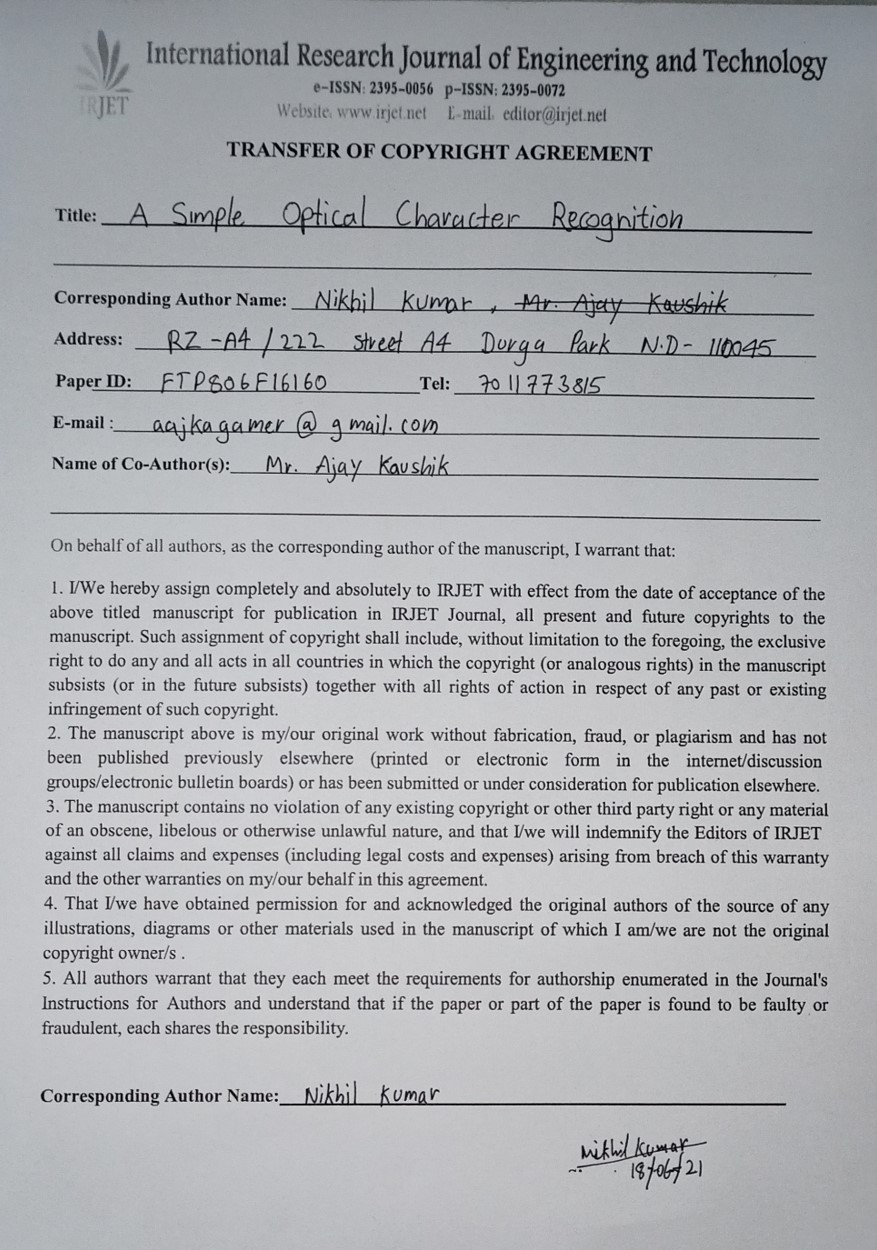 International Research Journal of Engineering and Technology
e-ISSN: 2395-0056 p-ISSN: 2395-0072
IRJET
Website: www.irjet.net E-mail: editor@irjet.net
TRANSFER OF COPYRIGHT AGREEMENT
Title: A Simple Optical Character Recognition
Corresponding Author Name: Nikhil Kumar , Mr. Ajay Kaushik
Address: RZ-A4/222 Street A4 Durga Park N.D- 110045
Paper ID: FTP806F16160 Tel: 7011773815
E-mail : aajkagamer@gmail.com
Name of Co-Author(s): Mr. Ajay Kaushik
On behalf of all authors, as the corresponding author of the manuscript, I warrant that:
1. I/We hereby assign completely and absolutely to IRJET with effect from the date of acceptance of the
above titled manuscript for publication in IRJET Journal, all present and future copyrights to the
manuscript. Such assignment of copyright shall include, without limitation to the foregoing, the exclusive
right to do any and all acts in all countries in which the copyright (or analogous rights) in the manuscript
subsists (or in the future subsists) together with all rights of action in respect of any past or existing
infringement of such copyright.
2. The manuscript above is my/our original work without fabrication, fraud, or plagiarism and has not
been published previously elsewhere (printed or electronic form in the internet/discussion
groups/electronic bulletin boards) or has been submitted or under consideration for publication elsewhere.
3. The manuscript contains no violation of any existing copyright or other third party right or any material
of an obscene, libelous or otherwise unlawful nature, and that I/we will indemnify the Editors of IRJET
against all claims and expenses (including legal costs and expenses) arising from breach of this warranty
and the other warranties on my/our behalf in this agreement.
4. That I/we have obtained permission for and acknowledged the original authors of the source of any
illustrations, diagrams or other materials used in the manuscript of which I am/we are not the original
copyright owner/s .
5. All authors warrant that they each meet the requirements for authorship enumerated in the Journal's
Instructions for Authors and understand that if the paper or part of the paper is found to be faulty or
fraudulent, each shares the responsibility.
Corresponding Author Name: Nikhil Kumar
Nikhil Kumar
18/06/21